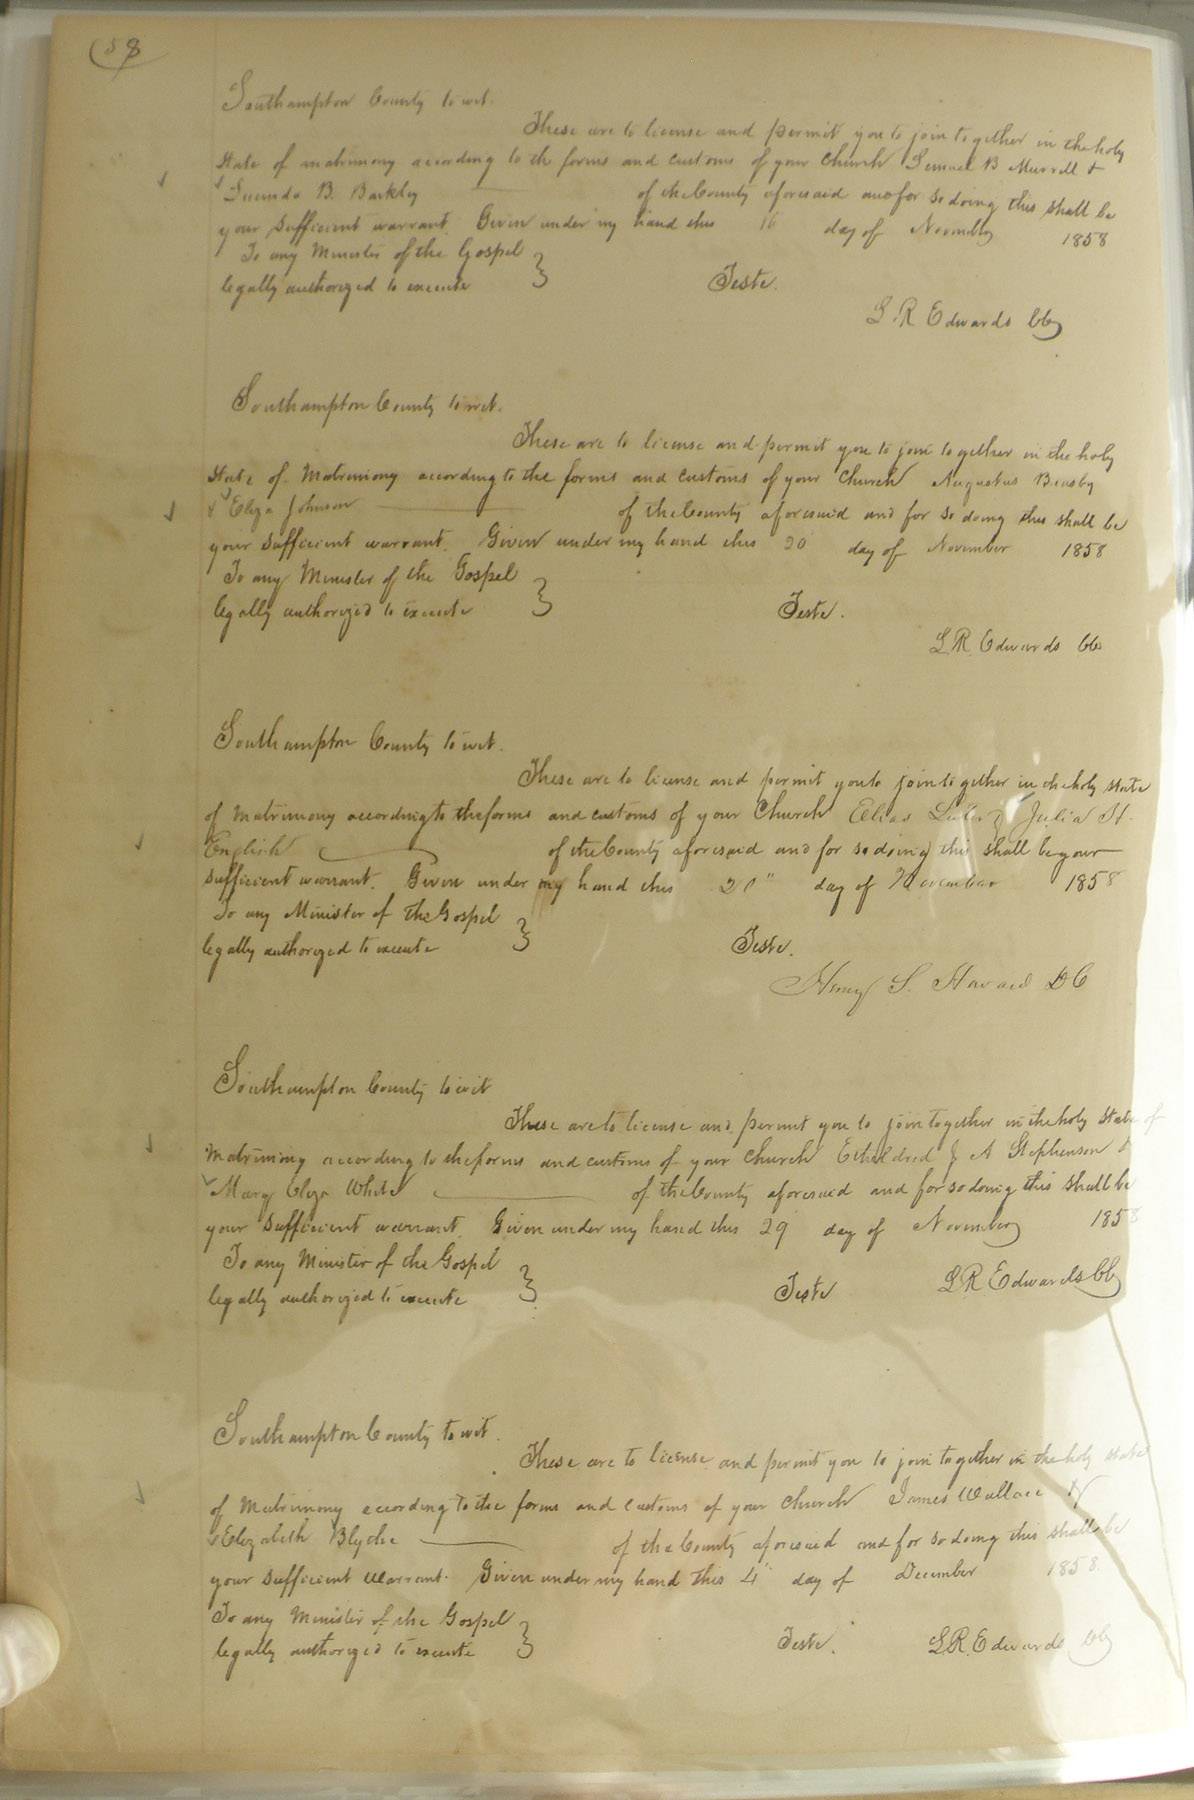 58
Southampton County to wit.
These are to license and permit you to join together in the holy
State of matrimony according to the forms and customs of your Church Lemuel B Murrell &
Lucinda B. Barkley of the County aforesaid and for so doing this shall be
your sufficient warrant. Given under my hand this 16 day of November 1858
To any Minister of the Gospel
legally authorized to execute } Teste.
L R Edwards CC
Southampton County to wit.
These are to license and permit you to join together in the holy
State of Matrimony according to the forms and customs of your Church Augustus
& Eliza Johnson of the County aforesaid and for so doing this shall be
your sufficient warrant. Given under my hand this 20 day of November 1858
To any Minister of the Gospel
legally authorized to execute } Teste.
L.R. Edwards CC
Southampton County to wit.
These are to license and permit you to join together in the holy state
of Matrimony according to the forms and customs of your Church Elias & Julia H.
English of the County aforesaid and for so doing this shall be your
sufficient warrant. Given under my hand this 20" day of November 1858
To any Minister of the Gospel
legally authorized to execute } Teste.
Henry S. DC
Southampton County to wit
These are to license and permit you to join together in the holy state of
Matrimony according to the forms and customs of your Church Etheldred J A Stephenson &
Mary Eliza White of the County aforesaid and for so doing this shall be
your sufficient warrant. Given under my hand this 29 day of November 1858
To any Minister of the Gospel
legally authorized to execute } Teste L R Edwards CC
Southampton County to wit.
These are to license and permit you to join together in the holy state
of Matrimony according to the forms and customs of your Church James Wallace &
Elizabeth Blythe of the County aforesaid and for so doing this shall be
your sufficient warrant. Given under my hand this 4" day of December 1858.
To any Minister of the Gospel
legally authorized to execute } Teste. L.R. Edwards CC